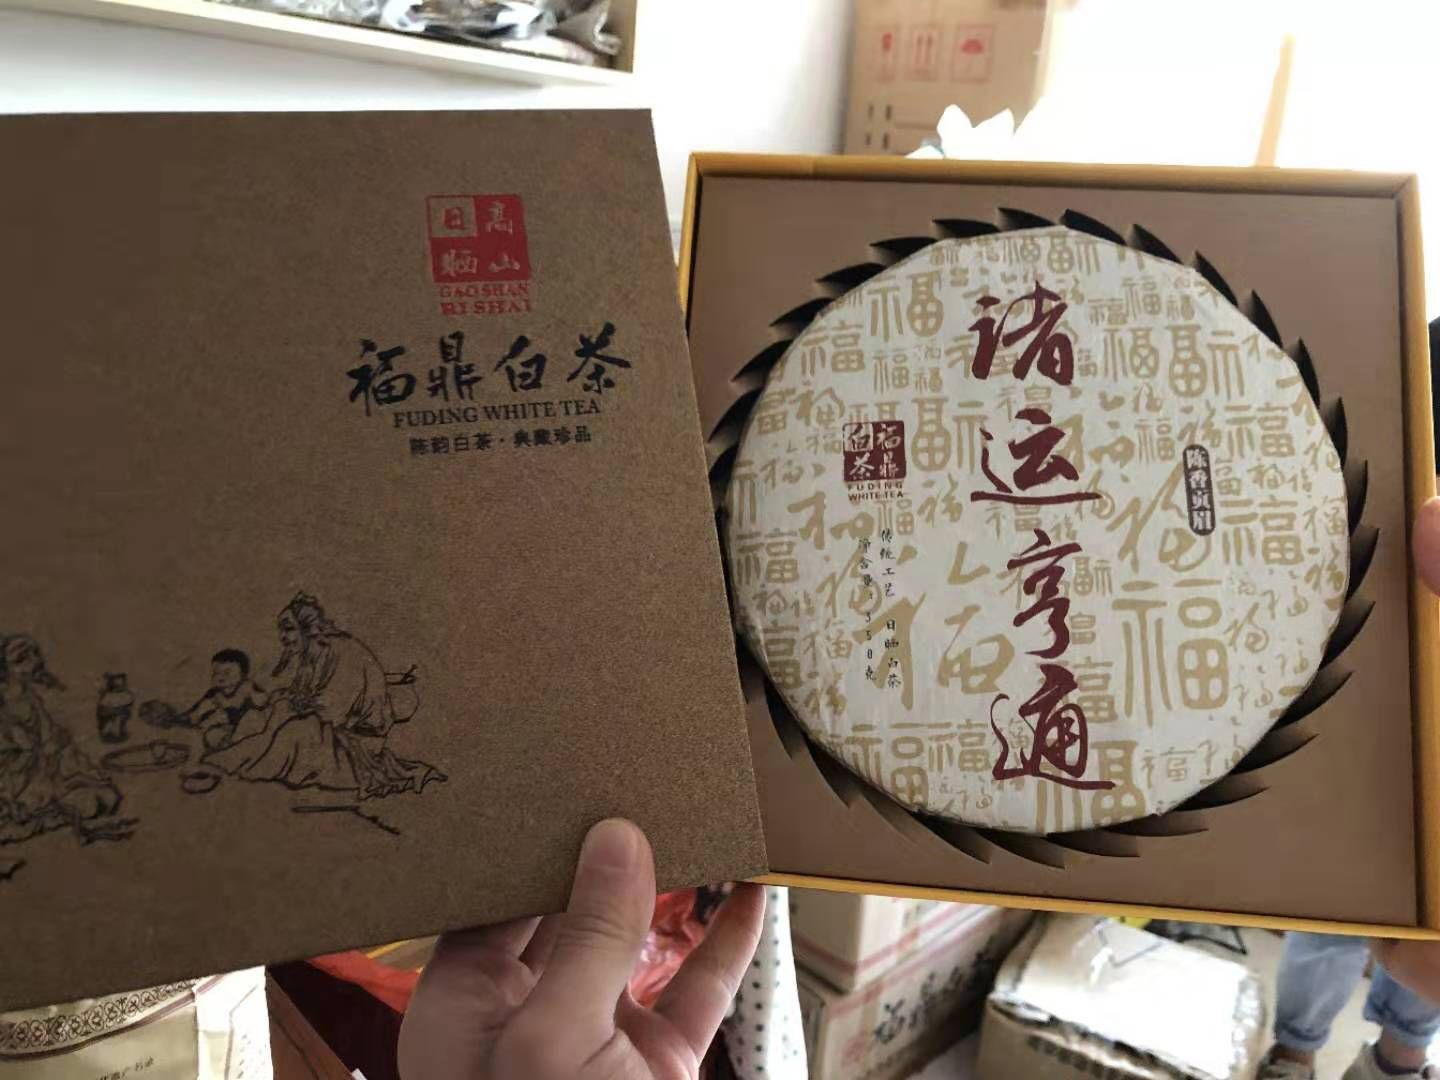 高山
日晒
GAO SHAN
RI SHAI
福鼎白茶
FUDING WHITE TEA
陈韵白茶·典藏珍品
诸运亨通
陈香贡眉
福鼎
白茶
FUDING
WHITE TEA
传统工艺 日晒白茶
净含量:350克
福鼎